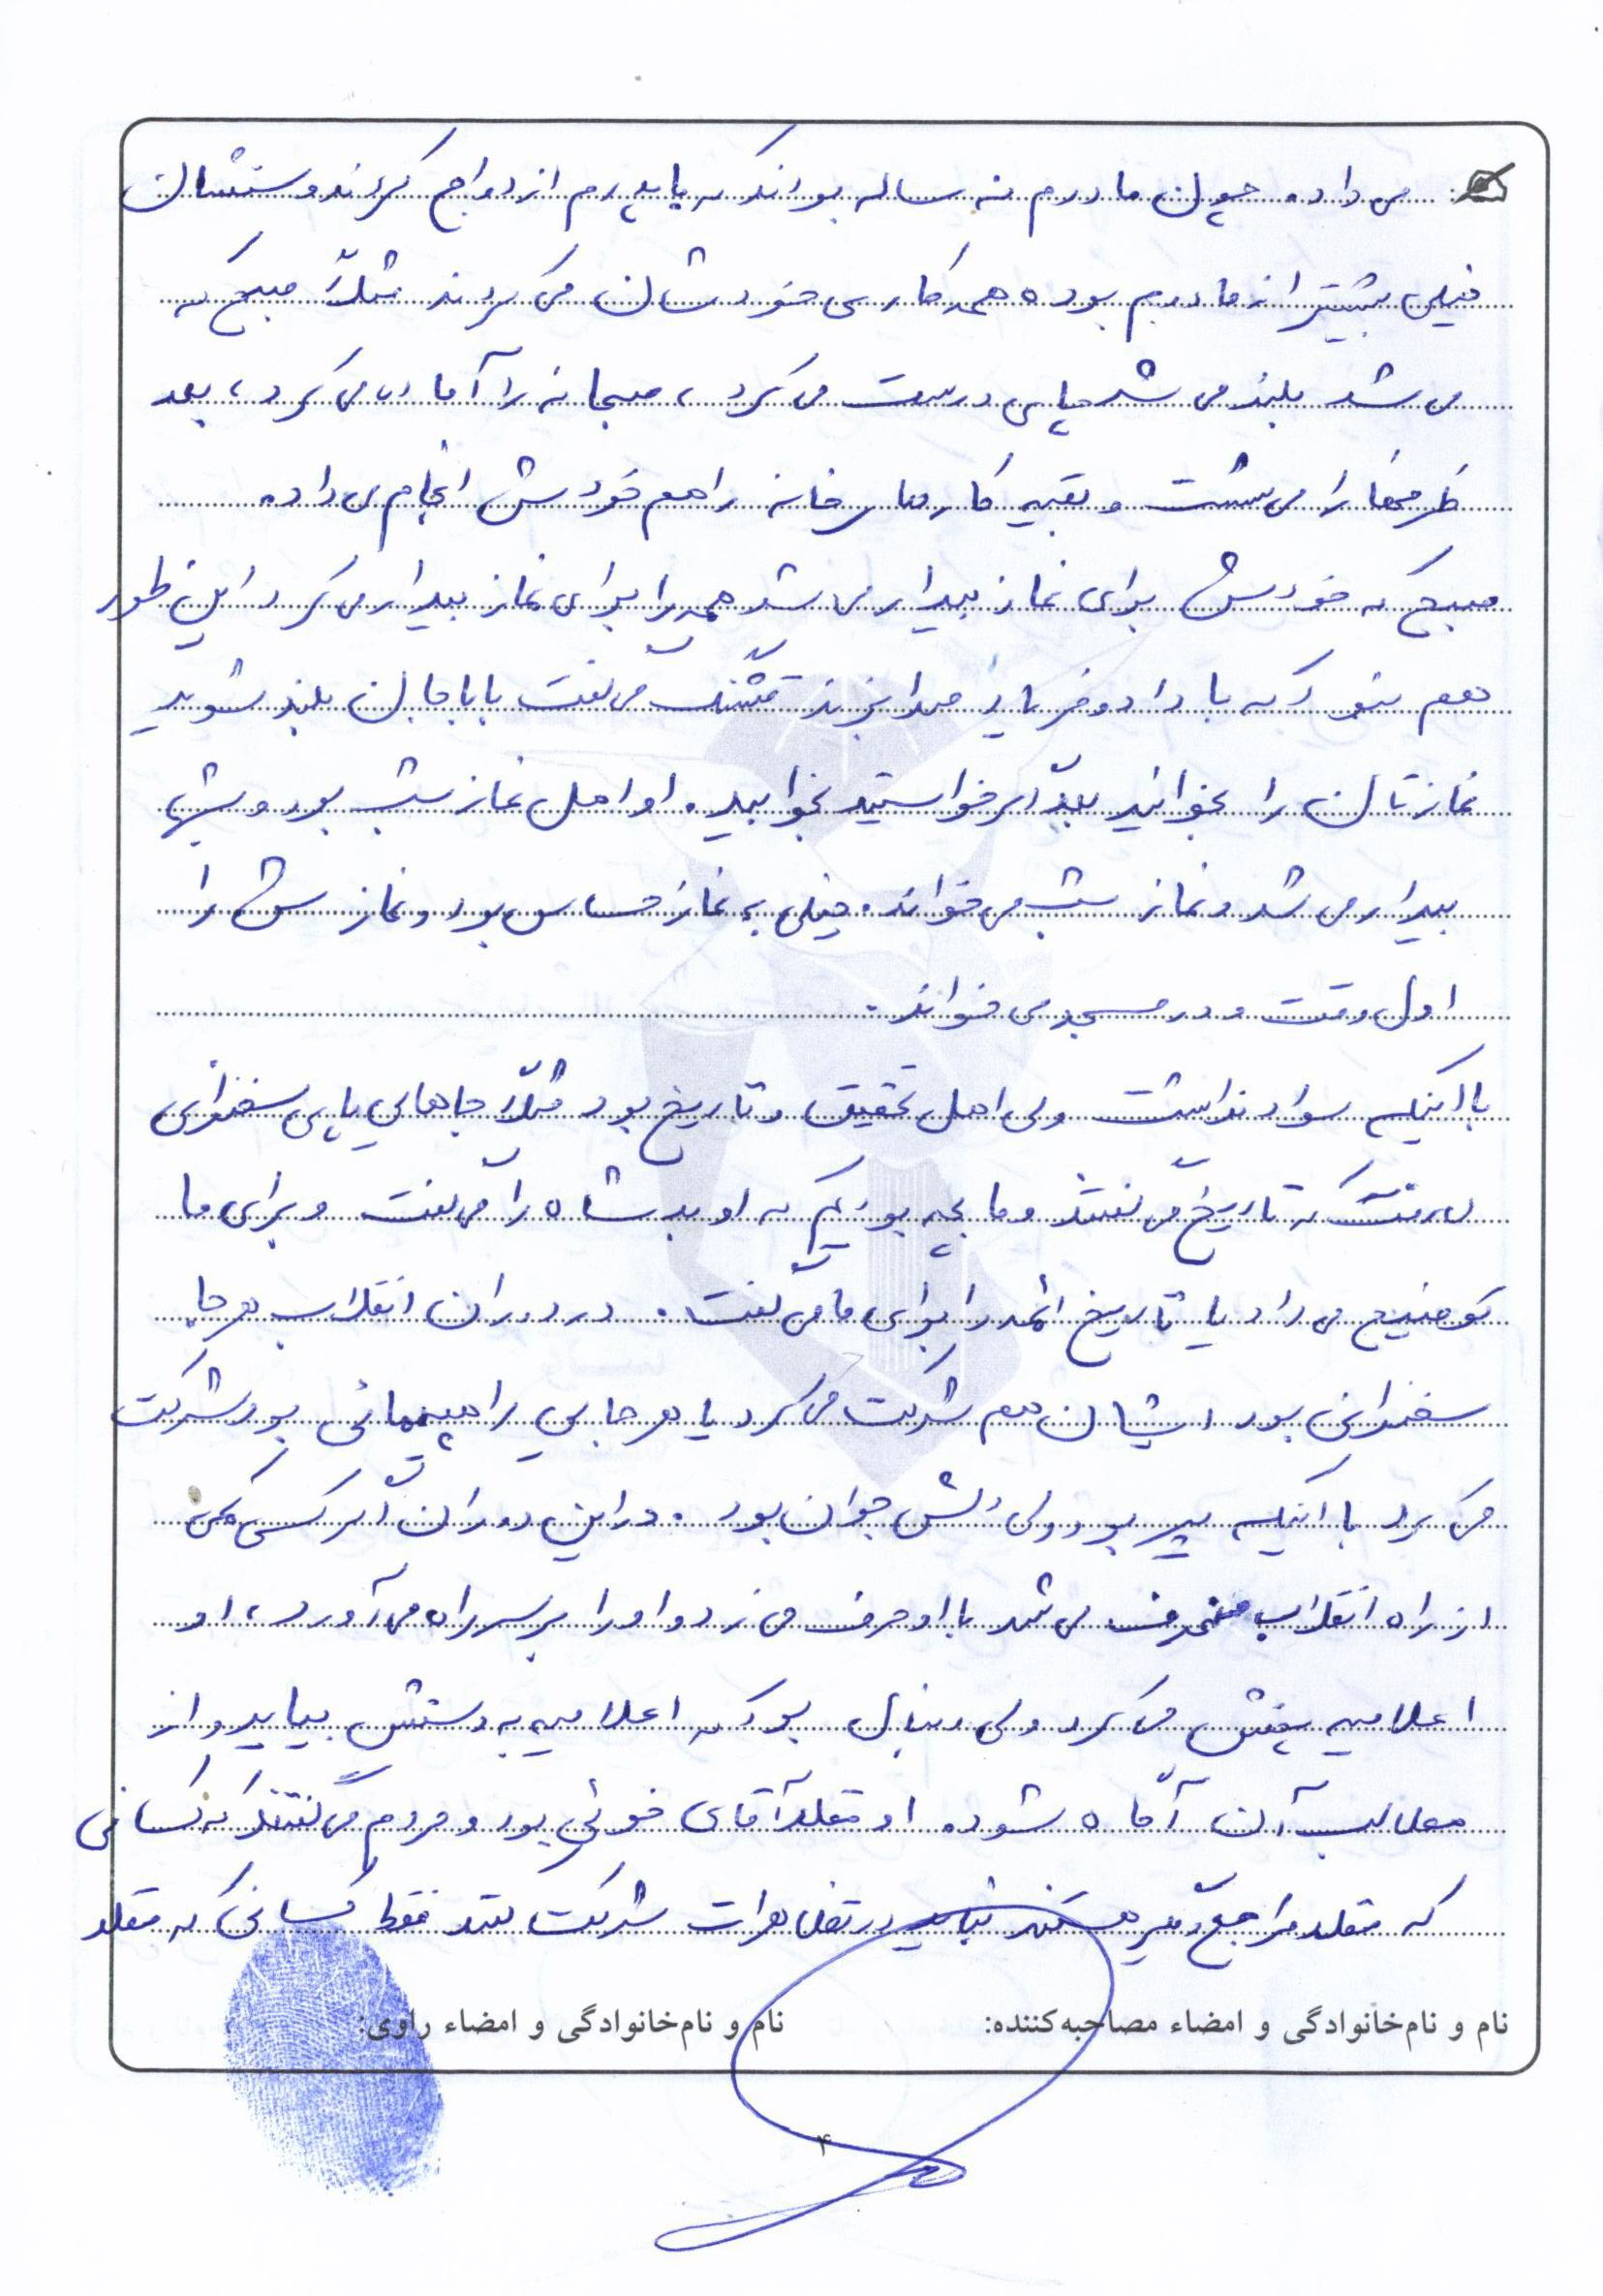 می داد. چون مادرم نه ساله بودند که با پدرم ازدواج کردند و سنشان
خیلی بیشتر از مادرم بوده همه کارهای خودشان می کردند مثلاً صبح که
می شد بلند می شد چایی درست می کرد، صبحانه را آماده می کرد، بعد
ظرفها را می شست و بقیه کارهای خانه را هم خودش انجام می داد.
صبح که خودش برای نماز بیدار می شد همه را برای نماز بیدار می کرد این طور
هم نبود که با داد و فریاد صدا بزند قشنگ می گفت باباجان بلند شوید
نمازتان را بخوانید بعد اگر خواستید بخوابید. او اهل نماز شب بود و شبها
بیدار می شد و نماز شب می خواند. خیلی به نماز حساس بود و نمازش را
اول وقت و در مسجد می خواند.
با اینکه سواد نداشت ولی اهل تحقیق و تاریخ بود مثلاً جاهایی پای سخنرانی
می رفت که تاریخ می گفتند و ما بچه بودیم که او بد شاه را می گفت و برای ما
توضیح می داد یا تاریخ ائمه را برای ما می گفت. در دوران انقلاب هر جا
سخنرانی بود ایشان هم شرکت می کرد یا هر جایی راهپیمائی بود شرکت
می کرد با اینکه پیر بود ولی دلش جوان بود. در این دوران اگر کسی کمی
از راه انقلاب منحرف می شد با او حرف می زد و او را بر سر راه می آورد، او
اعلامیه پخش می کرد ولی دنبال بود که اعلامیه به دستش بیاید و از
مطالب آن آگاه شود. او مقلد آقای خوئی بود و مردم می گفتند که کسانی
که مقلد مراجع دیگر هستند نباید در تظاهرات شرکت کنند فقط کسانی که مقلد
نام و نام‌خانوادگی و امضاء مصاحبه‌کننده: نام و نام‌خانوادگی و امضاء راوی:
۴